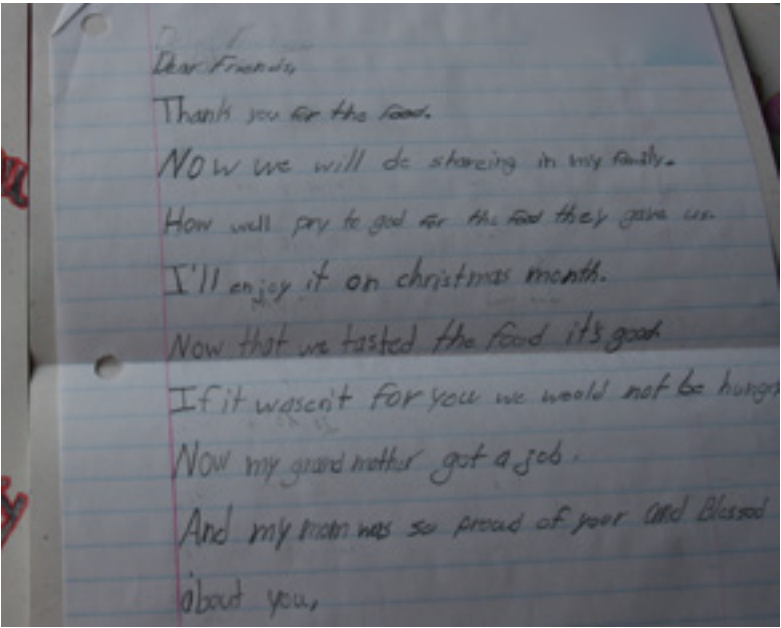 Dear Friends,
Thank you for the food.
Now we will do shareing in my family.
How well pry to god for the food they gave us.
I'll enjoy it on christmas month.
Now that we tasted the food it's good.
If it wasen't for you we would not be hungr
Now my grand mother got a job.
And my mom was so proud of your and Blessed
about you,